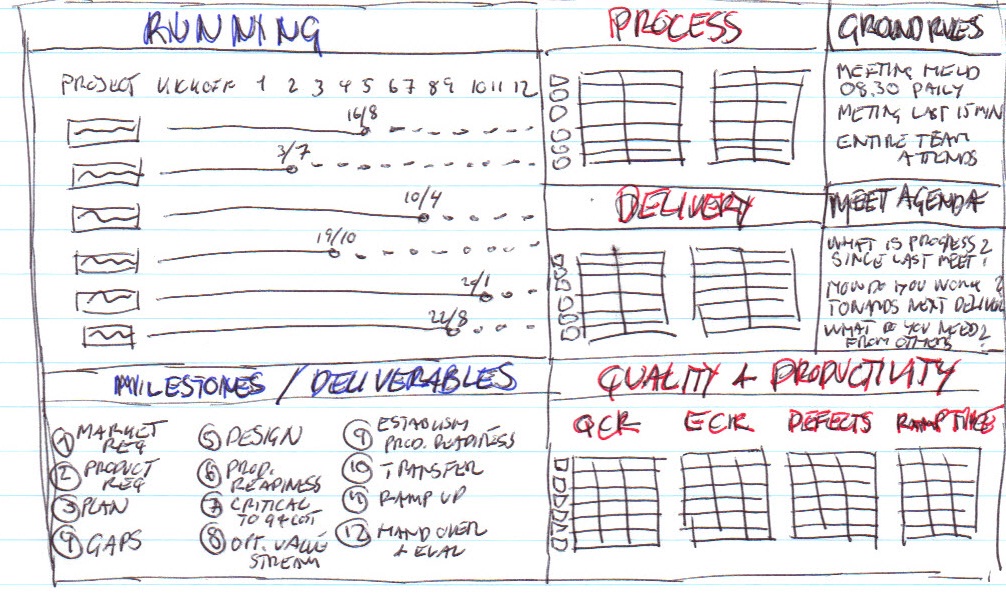 RUNNING
PROJECT K.KHOFF 1 2 3 4 5 6 7 8 9 10 11 12
16/8
3/7
10/4
19/10
22/8
MILESTONES / DELIVERABLES
1 MARKET REQ
2 PRODUCT REQ
3 PLAN
4 GAPS
5 DESIGN
6 PROD. READINESS
7 CRITICAL TO Q+COST
8 OPT. VALUE STREAM
9 ESTABLISH PROD. READINESS
10 TRANSFER
11 RAMP UP
12 HANDOVER + EVAL
PROCESS
DELIVERY
QUALITY + PRODUCTIVITY
QCR ECR DEFECTS RAMPTIME
GROUNDRULES
MEETING HELD
08.30 DAILY
METING LAST 15 MIN
ENTIRE TEAM
ATTENDS
MEET AGENDA
WHAT IS PROGRESS
SINCE LAST MEET?
HOW DO YOU WORK
TOWARDS NEXT DELIVER
WHAT DO YOU NEED?
FROM OTHERS